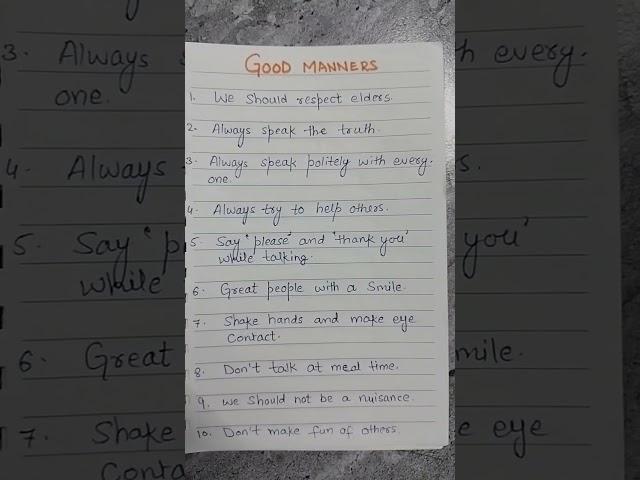 GOOD MANNERS
1. We should respect elders.
2. Always speak the truth.
3. Always speak politely with every.
one.
4. Always try to help others.
5. Say 'please' and 'thank you'
while talking.
6. Great people with a smile.
7. Shake hands and make eye
contact.
8. Don't talk at meal time.
9. we should not be a nuisance.
10. Don't make fun of others.